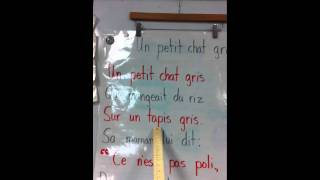 Un petit chat gris
Un petit chat gris
Qui mangeait du riz
Sur un tapis gris.
Sa maman lui dit:
"Ce n'es pas poli,